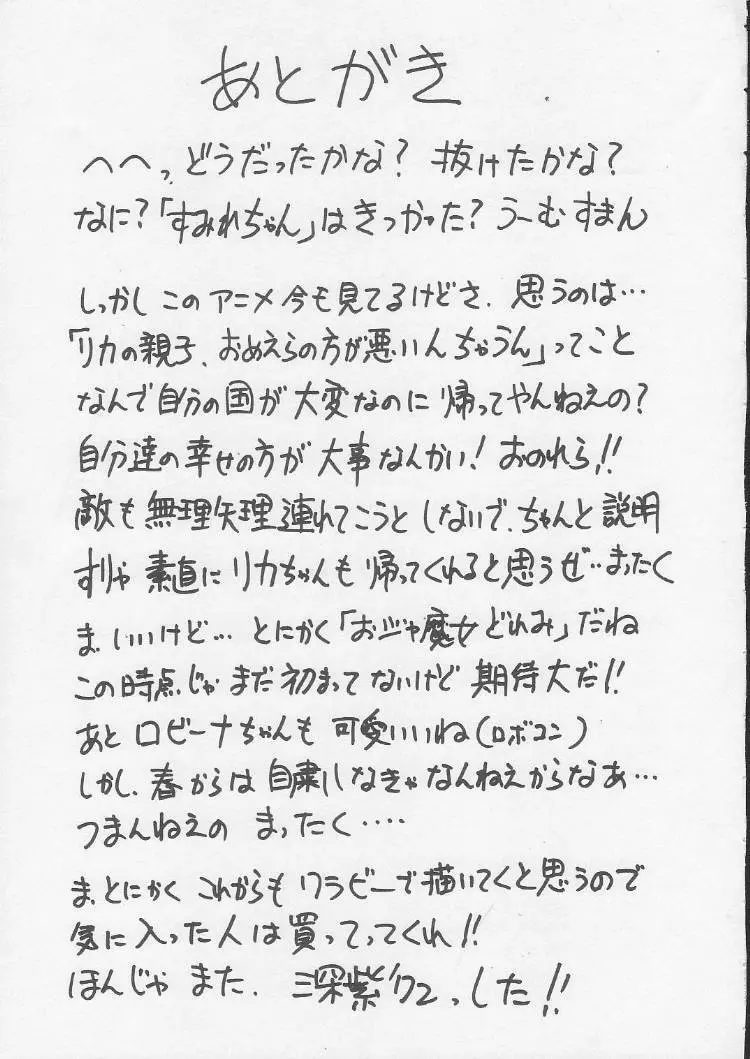 あとがき
へへっ、どうだったかな？ 抜けたかな？
なに？「すみれちゃん」はきつかった？ うーむ すまん
しっかし このアニメ 今も見てるけどさ、思うのは…
「リカの親子、おめえらの方が悪いんちゃうん」ってこと
なんで自分の国が 大変なのに 帰ってやんねえの？
自分達の幸せの方が 大事なんかい！ おのれら!!
敵も 無理矢理 連れてこうと しないで、ちゃんと 説明
すりゃ 素直に リカちゃんも 帰ってくれると思うぜ…まったく
ま、いいけど… とにかく「おジャ魔女どれみ」だね
この時点じゃ まだ 初まって ないけど 期待大だ!!
あと ロビーナちゃんも 可愛いいね（ロボコン）
しかし、春からは 自粛しなきゃなんねえからなぁ…
つまんねえの まったく‥‥
ま、とにかく これからも ワラビーで描いてくと思うので
気に入った人は 買ってってくれ!!
ほんじゃ また、 深紫 っした!!